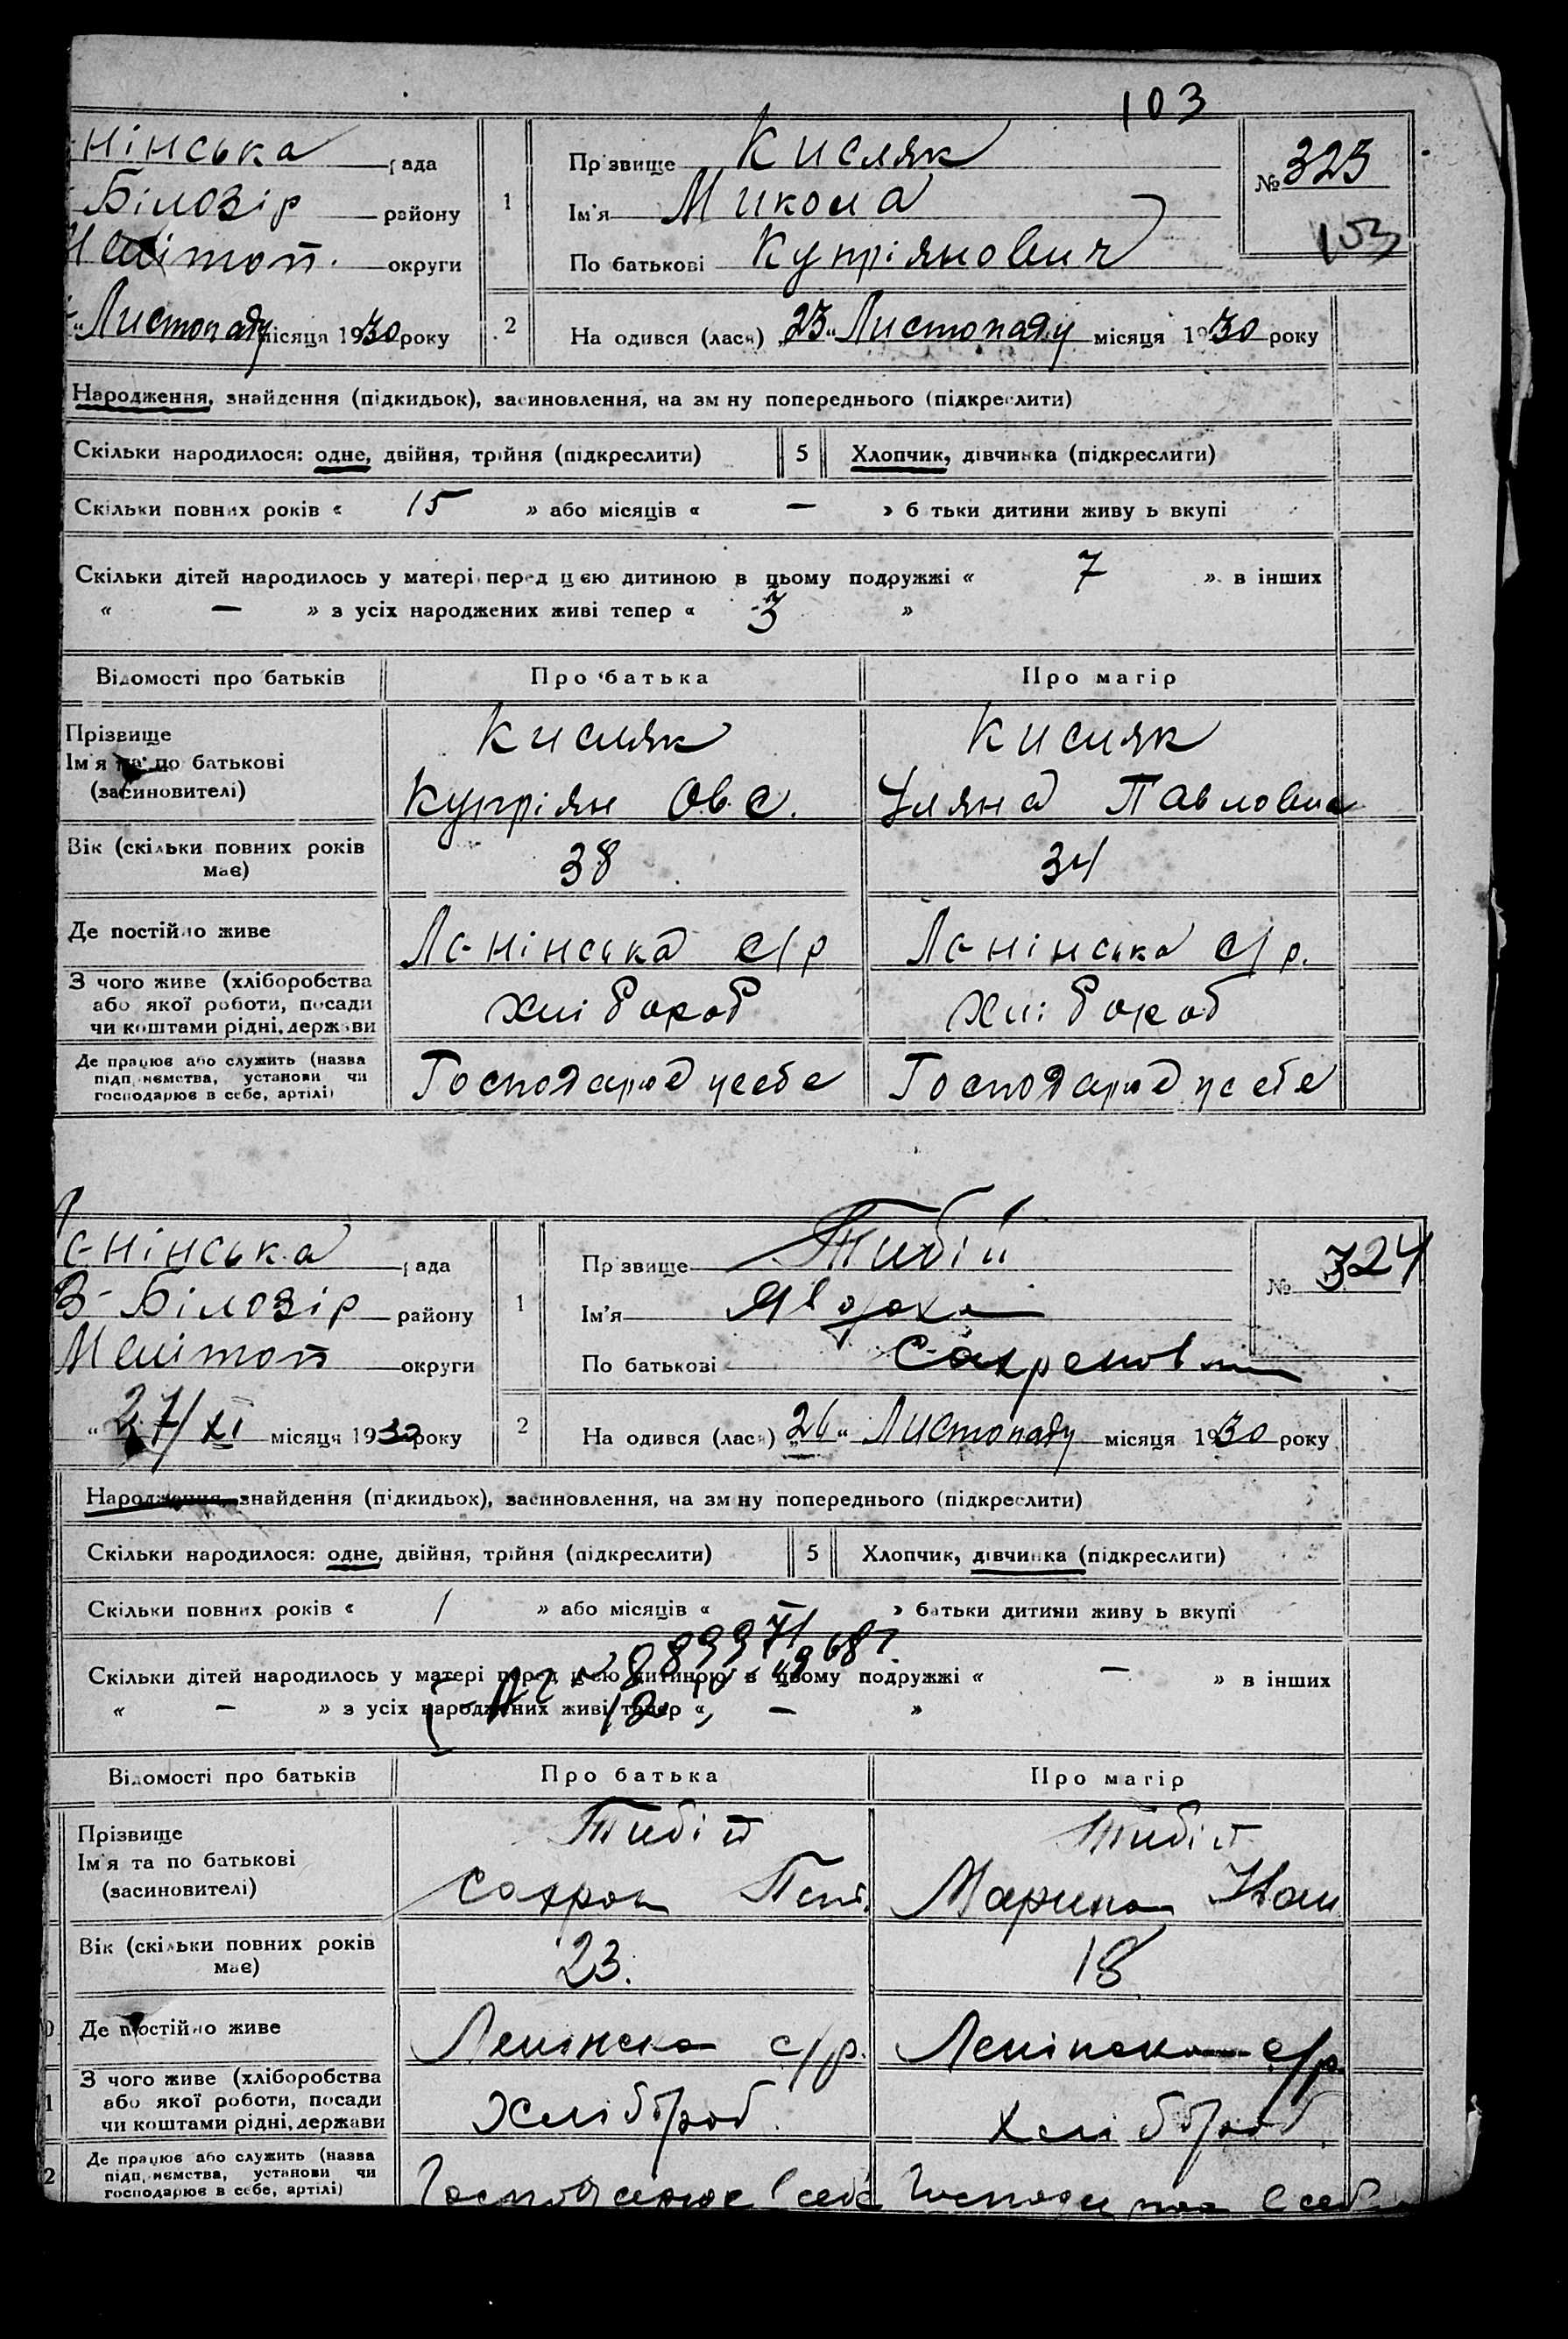 103
нінська рада
Білозір району
Мелітоп. округи
Листопаду місяця 1930 року
1
Прізвище Кисляк
Ім'я Микола
По батькові Купріянович
№ 323
103
2
На одився (лася) „23“ Листопаду місяця 1930 року
Народження, знайдення (підкидьок), засиновлення, на зм ну попереднього (підкреслити)
Скільки народилося: одне, двійня, трійня (підкреслити) 5 Хлопчик, дівчинка (підкреслити)
Скільки повних років « 15 » або місяців « — » б тьки дитини живу ь вкупі
Скільки дітей народилось у матері перед цією дитиною в цьому подружжі « 7 » в інших
« — » з усіх народжених живі тепер « 3 »
Відомості про батьків Про батька Про матір
Прізвище
Ім'я та по батькові
(засиновителі)
Кисляк Кисляк
Купріян Овс. Уляна Павловна
Вік (скільки повних років має) 38 34
Де постійно живе Ленінська с/р Ленінська с/р.
З чого живе (хліборобства
або якої роботи, посади
чи коштами рідні, держави
хлібороб хлібороб
Де працює або служить (назва
підп иємства, установи чи
господарює в себе, артілі)
Господарює усебе Господарює усебе
Ленінська рада
В-Білозір району
Мелітоп округи
„27/XI місяця 1930 року
1
Прізвище Тибій
Ім'я
По батькові
№ 324
2
На одився (лася) „26“ Листопаду місяця 1930 року
Народження, знайдення (підкидьок), засиновлення, на зм ну попереднього (підкреслити)
Скільки народилося: одне, двійня, трійня (підкреслити) 5 Хлопчик, дівчинка (підкреслити)
Скільки повних років « 1 » або місяців « — » батьки дитини живу ь вкупі
Скільки дітей народилось у матері перед цією дитиною в цьому подружжі « — » в інших
« — » з усіх народжених живі тепер « — »
Відомості про батьків Про батька Про матір
Прізвище
Ім'я та по батькові
(засиновителі)
Тибій Тибій
Марина Иван
Вік (скільки повних років має) 23. 18
Де постійно живе Ленінска с/р. Ленінска с/р.
З чого живе (хліборобства
або якої роботи, посади
чи коштами рідні, держави
Хлібороб Хлібороб
Де працює або служить (назва
підп иємства, установи чи
господарює в себе, артілі)
Господарює в себе